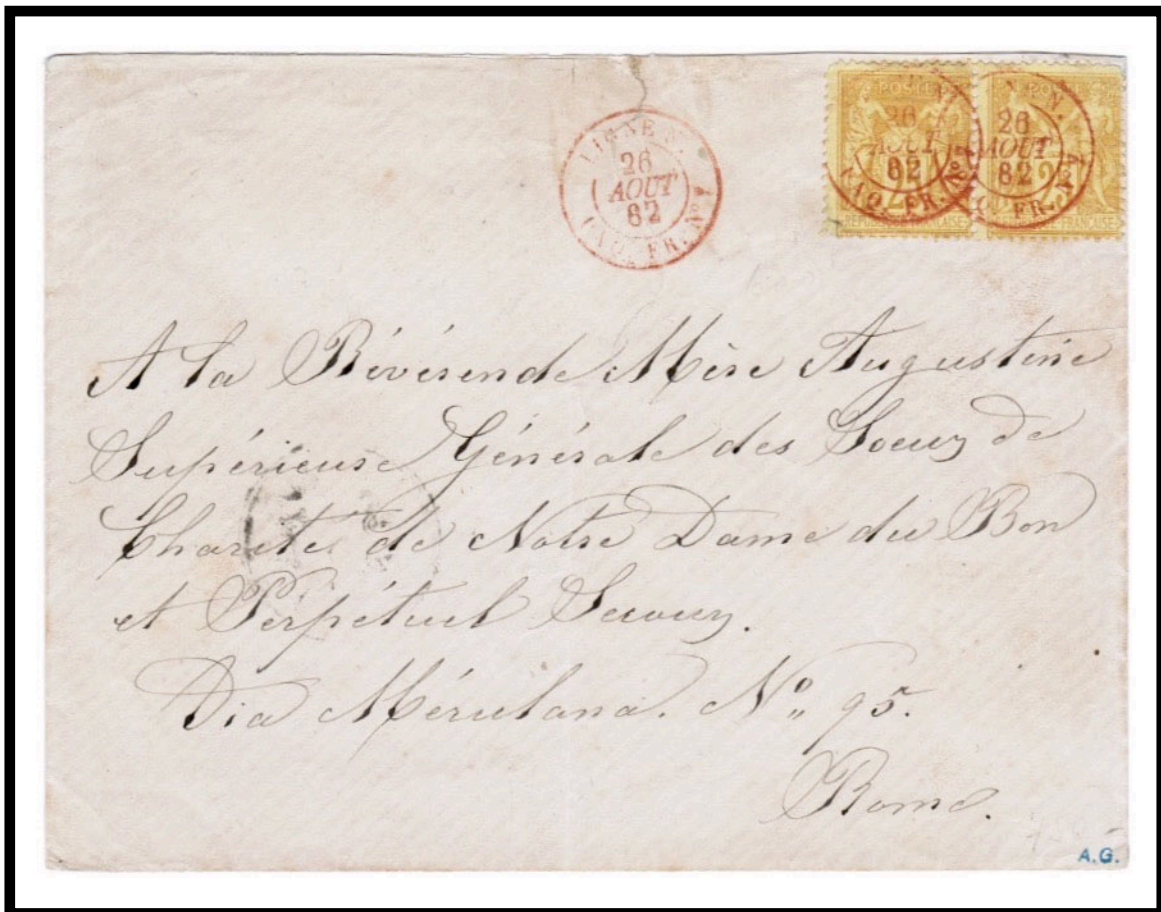 LIGNE N.
26
AOUT
82
PAQ. FR. Nº 4
POSTE
26
AOUT
82
PAQ. FR. Nº 4
N.
26
AOUT
82
Q. FR. Nº 4
25
REPUBLIQUE FRANÇAISE
A la Révérende Mère Augustine
Supérieure Générale des Soeurs de
Charité de Notre Dame du Bon
et Perpétuel Secours.
Via Mérulana. Nº 95.
Rome.
A.G.